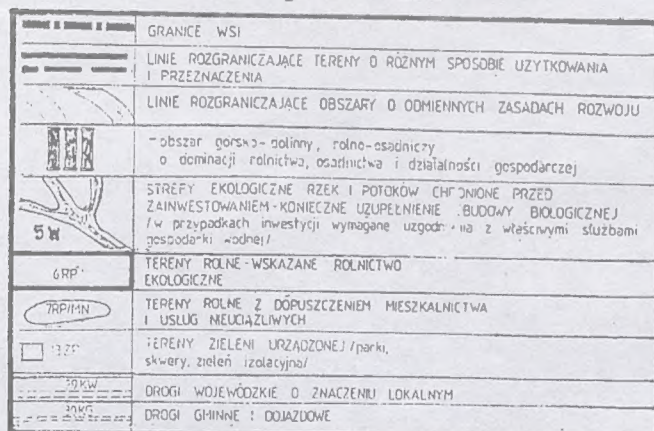 GRANICE WSI
LINIE ROZGRANICZAJĄCE TERENY O RÓŻNYM SPOSOBIE UŻYTKOWANIA
I PRZEZNACZENIA
LINIE ROZGRANICZAJĄCE OBSZARY O ODMIENNYCH ZASADACH ROZWOJU
- obszar górsko-dolinny, rolno-osadniczy
o dominacji rolnictwa, osadnictwa i działalności gospodarczej
5W
STREFY EKOLOGICZNE RZEK I POTOKÓW CHRONIONE PRZED
ZAINWESTOWANIEM - KONIECZNE UZUPEŁNIENIE BUDOWY BIOLOGICZNEJ
/w przypadkach inwestycji wymagane z właściwymi służbami
gospodarki wodnej/
6RP
TERENY ROLNE - WSKAZANE ROLNICTWO
EKOLOGICZNE
7RP/MN
TERENY ROLNE Z DOPUSZCZENIEM MIESZKALNICTWA
I USŁUG NIEUCIĄŻLIWYCH
TERENY ZIELENI URZĄDZONEJ /parki,
skwery, zieleń izolacyjna/
DROGI WOJEWÓDZKIE O ZNACZENIU LOKALNYM
DROGI GMINNE I DOJAZDOWE